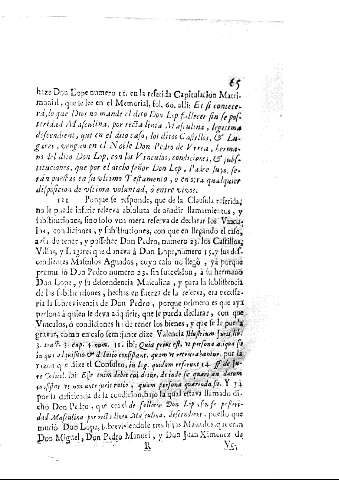 65
hize Don Lope numero 15. en la referida Capitulacion Matri-
monial, que se lee en el Memorial, fol. 60. alli: Et si contece-
rá, lo que Dios no mande el dito Don Lop fallecer sin se pos-
teridad Masculina, por recta linea Masculina, legitima
descendient, que en dito caso, los ditos Castillos, & Lu-
gares, vengan en el Noble Don Pedro de Urrea, herma-
no del dito Don Lop, con las Vinculos, condiciones, & subs-
tituciones, que por el dicho señor Don Lop, Padre suyo, se-
rán puestas en su ultimo Testamento, o en otra qualquier
disposicion de ultima voluntad, ò entre vivos.
Porque se responde, que de la Clausula referida,
no se puede inferir reserva absoluta de añadir llamamientos, y
substituciones, sino solo una mera reserva de declarar los Vincu-
los, condiciones, y substituciones, con que en llegando el caso,
avia de tener, y possehèr Don Pedro, numero 23. los Castillos,
Villas, y Lugares que danera à Don Lope, numero 15. y sus des-
cendientes Masculos Agnados, cuyo caso no llegò, ya porque
premuriò Don Pedro numero 23. sin sucession, à su hermano
Don Lope, y su descendencia Masculina, y para la subsistencia
de las substituciones, hechas en fuerza de la reserva, era necessa-
ria la sobrevivencia de Don Pedro, porque primero es que aya
persona à quien se deva adquirir, que le pueda declarar, con que
Vinculos, ò condiciones ha de tener los bienes, y que se le pueda
gravar, como en caso semejante dize Valencia Illustrium Juris lib.
3. tract. 3. cap. 4 num. 11. ibi: Quia prius est, ut persona aliqua sit
in qua
por la
razon que dize el Consulto, in leg. quidam referunt 14. ff. de Ju-
re Codicil. ibi: Esse
quam persona quærenda sit. Y ya
por la deficiencia de la condicion baxo la qual estava llamado di-
cho Don Pedro, que era el de fallecer Don Lop, sin se posteri-
dad Masculina por recta linea Masculina, descendient, puesto que
muriò Don Lope, sobreviviendole tres hijos Masculos, que eran
Don Miguel, Don Pedro Manuel, y Don Juan Ximenez de
R